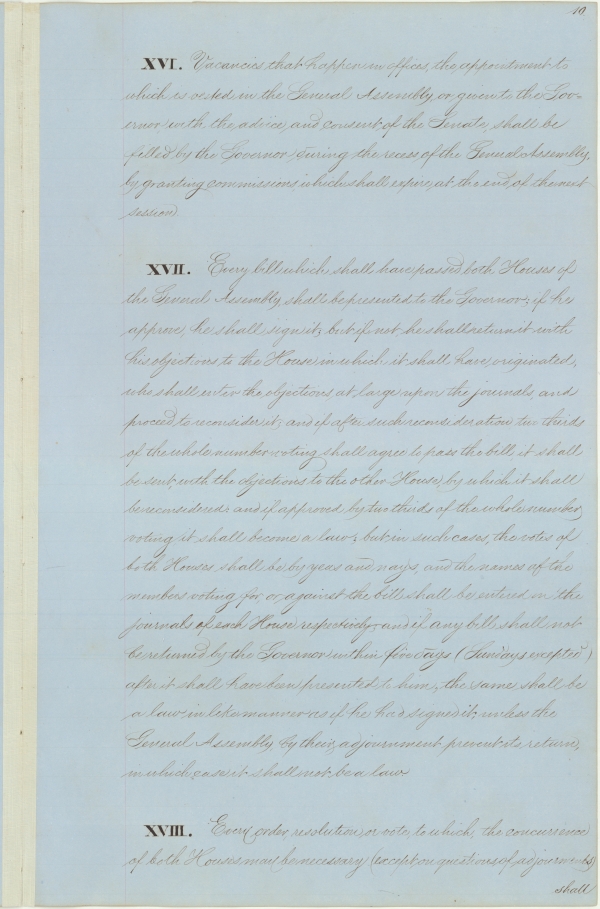 10.
XVI. Vacancies that happen in offices, the appointment to
which is vested in the General Assembly, or given to the Gov-
ernor, with the advice, and consent of the Senate, shall be
filled by the Governor, during the recess of the General Assembly,
by granting commissions which shall expire, at the end, of the next
session.
XVII. Every bill which shall have passed both Houses of
the General Assembly, shall be presented to the Governor; if he
approve, he shall sign it; but if not, he shall return it with
his objections to the House in which it shall have originated,
who shall enter the objections at large upon the journals, and
proceed to reconsider it; and if after such reconsideration two thirds
of the whole number voting shall agree to pass the bill, it shall
be sent with the objections to the other House, by which it shall
be reconsidered: and if approved by two thirds of the whole number
voting it shall become a law; but in such cases, the votes of
both Houses shall be by yeas and nays, and the names of the
members voting for, or against the bill shall be entered on the
journals of each House respectively; and if any bill shall not
be returned by the Governor within five days (Sundays excepted)
after it shall have been presented to him; the same shall be
a law in like manner as if he had signed it; unless the
General Assembly by their adjournment prevent its return,
in which case it shall not be a law.
XVIII. Every order resolution, or vote, to which, the concurrence
of both Houses may be necessary (except on questions of adjournments)
shall